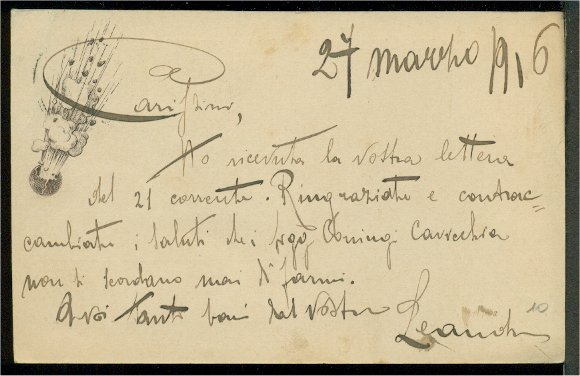 27 marzo 1916
Carissimi,
Ho ricevuta la vostra lettera
del 21 corrente. Ringraziate e contrac=
cambiate i saluti che i
non si scordano mai di farmi.
A voi tanti baci dal vostro
Leandro
10